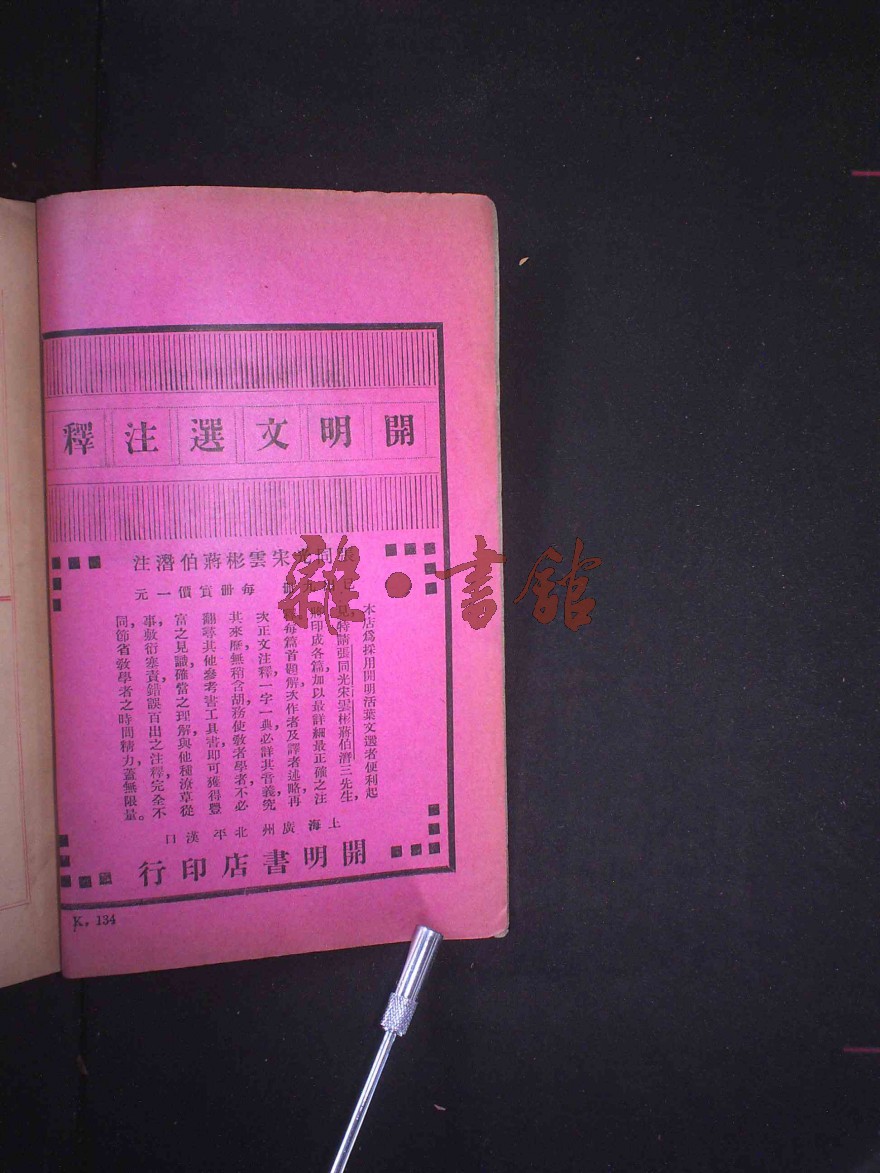 開明文選注釋
張同光宋雲彬蔣伯潛注
每冊實價一元
本店爲採用開明活葉文選者便利起
見,特請張同光宋雲彬蔣伯潛三先生,
將印成各篇加以最詳細最正確之注
每篇首題解,次作者及譯者述略,再
次正文注釋,一字一典,必詳其音義,究
其來歷,無稍含胡,務使敎者學者,不必
翻尋其他參考書工具書,卽可獲得豐
富之見識,確當之理解,與他種潦草從
事,敷衍塞責,錯誤百出之注釋,完全不
同,節省敎學者之時間精力,蓋無限量。
上海 廣州 北平 漢口
開明書店印行
K. 134
雜·書館